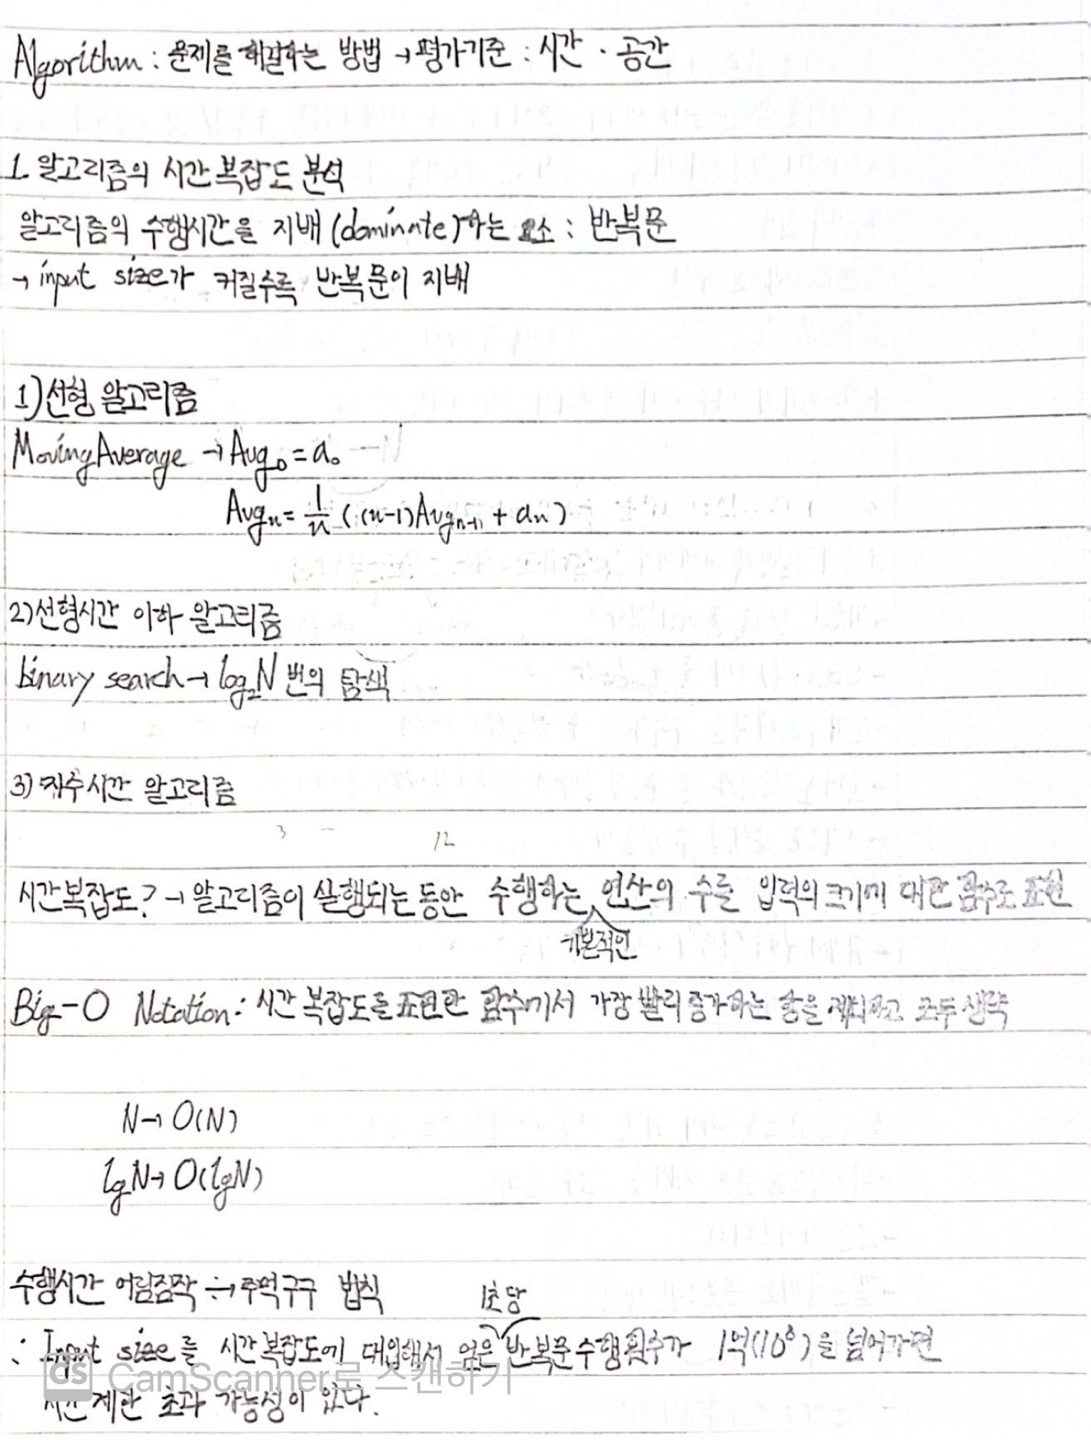 Algorithm : 문제를 해결하는 방법 → 평가기준 : 시간 · 공간
1. 알고리즘의 시간 복잡도 분석
알고리즘의 수행시간을 지배 (dominate)하는 요소 : 반복문
→ input size가 커질수록 반복문이 지배
1) 선형 알고리즘
Moving Average → Avg₀ = a₀
Avgₙ = 1/n ( (n-1)Avgₙ₋₁ + aₙ )
2) 선형시간 이하 알고리즘
binary search → log₂N 번의 탐색
3) 지수시간 알고리즘
3 - 12
시간복잡도? → 알고리즘이 실행되는 동안 수행하는 연산의 수를 입력의 크기에 대한 함수로 표현
기본적인
Big-O Notation : 시간 복잡도를 표현한 함수에서 가장 빨리 증가하는 항을 제외하고 모두 생략
N → O(N)
lgN → O(lgN)
수행시간 어림짐작 → 주먹구구 법칙
1초당
: Input size를 시간복잡도에 대입해서 얻은 반복문 수행 횟수가 1억(10⁸)을 넘어가면
시간 제한 초과 가능성이 있다.
CS CamScanner로 스캔하기